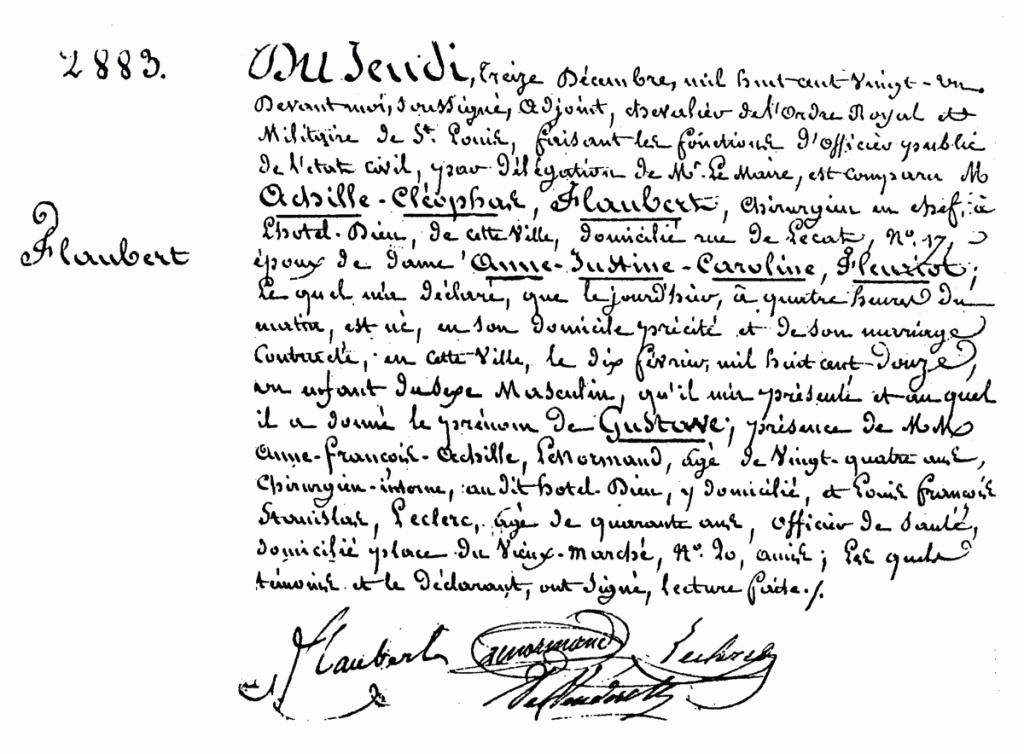 2883.
Du Jeudi, treize Décembre, mil huit cent vingt-un
Devant moi, soussigné, adjoint, chevalier de l'ordre Royal et
Militaire de St. Louis, faisant les fonctions d'Officier public
de l'état civil, par délégation de Mr. Le Maire, est comparu M
Achille-Cléophas, Flaubert, chirurgien en chef, à
Flaubert
L'hotel-Dieu, de cette Ville, domicilié rue de Lecat, No. 17,
époux de dame Anne-Justine-Caroline, Fleuriot;
Le quel m'a déclaré, que le jourd'hui, à quatre heures du
matin, est né, en son domicile précité et de son mariage
Contracté, en cette Ville, le dix février, mil huit cent-douze,
un enfant du sexe Masculin, qu'il m'a présenté et au quel
il a donné le prénom de Gustave; présence de MM
Anne-François-Achille, Lenormand, âgé de Vingt-quatre ans,
Chirurgien-interne, au dit hotel-Dieu, y domicilié, et Louis François
Stanislas, Leclerc, âgé de quarante ans, officier de santé,
domicilié place du Vieux-Marché, No. 20, amis; Les quels
témoins et le déclarant, ont signé, lecture faite./.
Flaubert Lenormand Leclerc